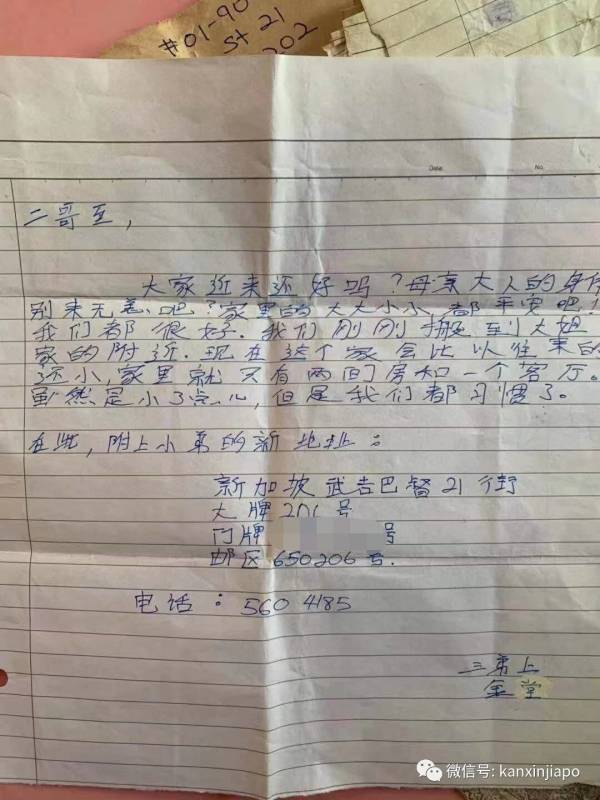 #01-90
St 21
202
Date
No.
二哥至,
大家近来还好吗?母亲大人的身体
别来无恙吧?家里的大大小小,都平安吧!
我们都很好.我们刚刚搬到大姐
家的附近.现在这个家会比以往来的
还小,家里就只有两间房和一个客厅。
虽然是小了点儿,但是我们都习惯了。
在此,附上小弟的新地址:
新加坡武吉巴督21街
大牌201号
门牌 号
邮区650206号.
电话:560 4185
三弟上
金堂
微信号: kanxinjiapo